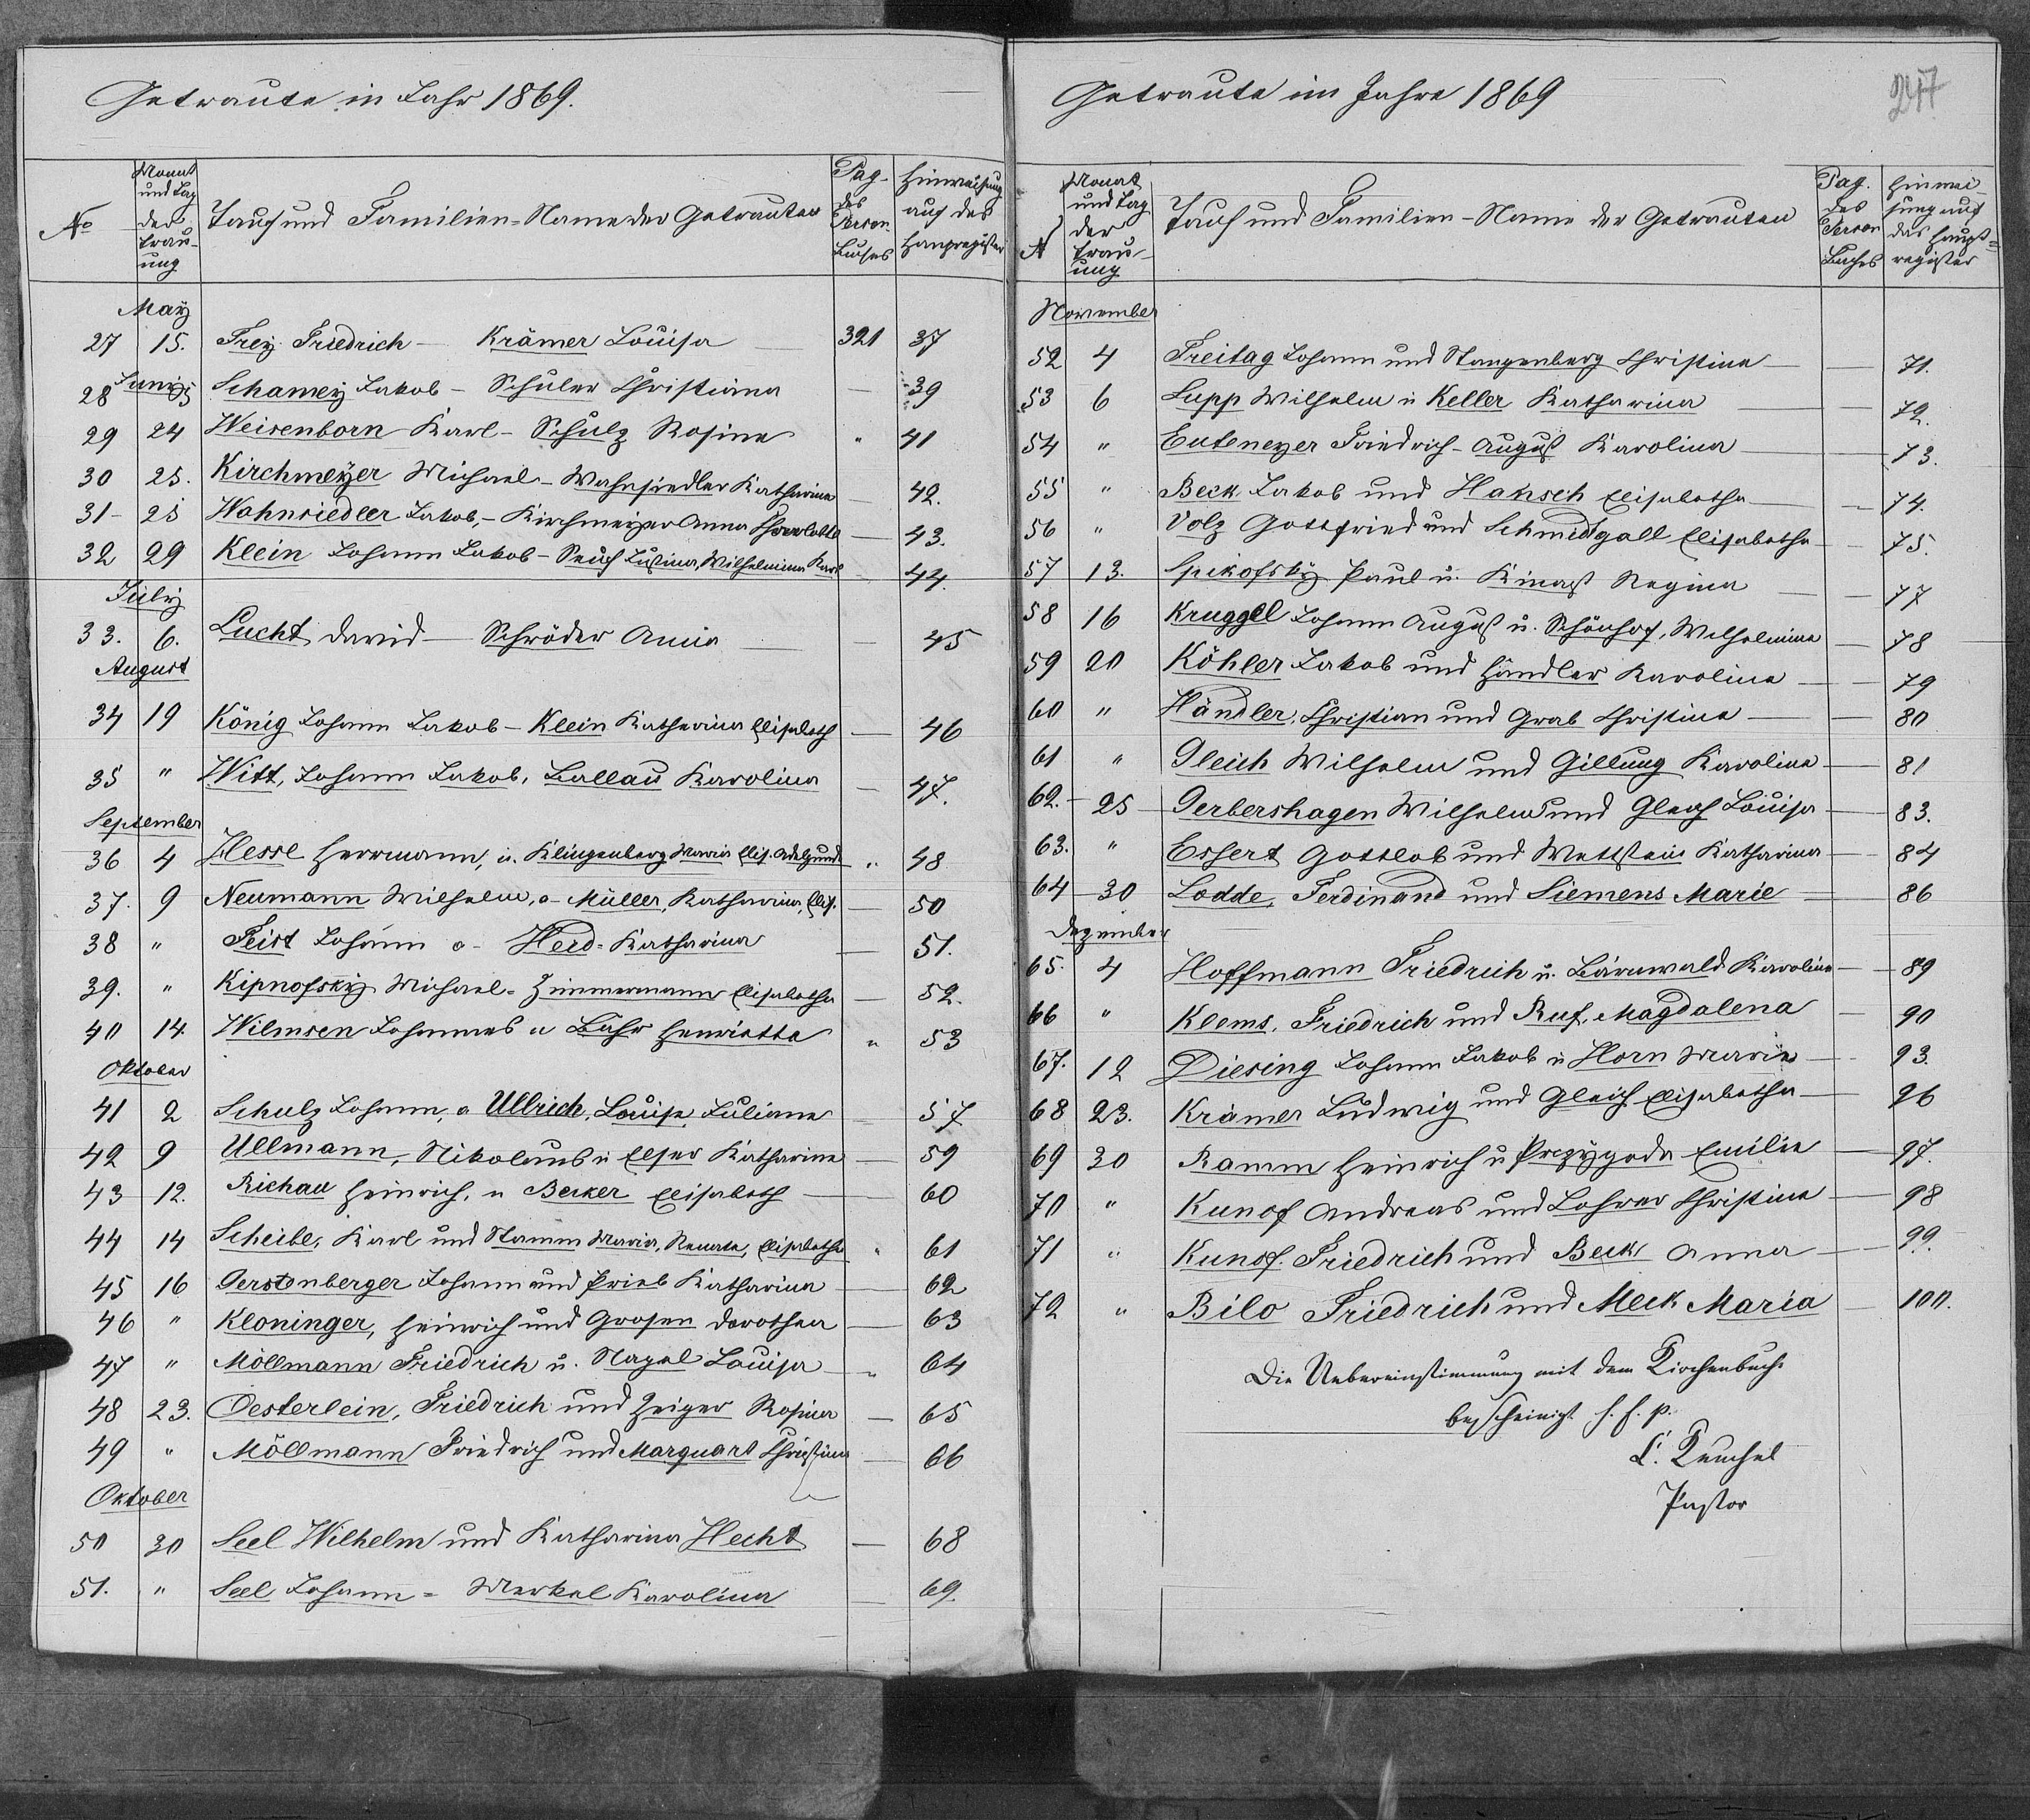 Getraute in Jahr 1869.
No
Monat
und Tag
der
Trau-
ung
Tauf und Familien-Name der Getrauten
Pag.
des
Person
Buches
Hinweisung
auf das
Haupregister
May
27 15. Frey Friedrich — Krämer Louisa — 321 37
Juny
28 5 Schamey Jakob - Schuler Christiana — 39
29 24 Weisenborn Karl - Schulz Rosina " 41
30 25. Kirchmeyer Michael - Wahnsiedler Katharina — 42.
31 - 25 Wahnsiedler Jakob, - Kirchmeyer Anna Charlotte — 43.
32 29 Klein Johann Jakob - Justina, Wilhelmina Karl — 44.
July
33. 6. Lucht David — Schröder Anna — 45
August
34 19 König Johann Jakob - Klein Katharina Elisabeth — 46
35 " Witt, Johann Jakob, Ballau Karolina — 47.
September
36 4 Hesse Herrmann, u. Klingenberg Maria Elis. Adelgunde " 48
37. 9 Neumann Wilhelm, o - Müller, Katharina Elis. — 50
38 " Feist Johann o - Herd - Katharina — 51.
39. " Kipnofsky Michael - Zimmermann Elisabetha — 52.
40 14. Wilmsen Johannes u Bähr Henriette " 53
Oktober
41 2 Schulz Johann, o Ullrich, Louise Juliane — 57
42 9 Ullmann, Nikolaus u Elser Katharina — 59
43 12. Richau Heinrich, u Becker Elisabeth — 60
44 14 Scheibe, Karl und Stamm Maria, Renata, Elisabetha " 61
45 16 Gerstenberger Johann und Prieb Katharina — 62
46 " Kloninger, Heinrich und Grosen Dorothea — 63
47 " Möllmann Friedrich u. Nagel Louisa — " 64
48 23. Oesterlein, Friedrich und Zeiger Rosina — 65
49 " Möllmann Friedrich und Marquart Christina — 66
Oktober
50 30 Seel Wilhelm und Katharina Hecht — 68
51. " Seel Johann = Merkel Karolina — 69.
Getraute im Jahre 1869
247
N
Monat
und Tag
der
Trau-
ung
Tauf und Familien-Name der Getrauten
Pag.
des
Person
Buches
Hinwei-
sung auf
das Haupt=
register
November
52 4 Freitag Johann und Stangenberg Christina — 71.
53 6 Lupp Wilhelm u Keller Katharina — 72.
54 " Euteneyer Friedrich - August Karolina — 73.
55 " Beck Jakob und Haksch Elisabetha — 74.
56 " Volz Gottfried und Schmidtgall Elisabetha — 75.
57 13. Spikofsky Paul u. Kinast Regina — 77
58 16 Kruggel Johann August u. Schönhof, Wilhelmina — 78
59 20 Köhler Jakob und Händler Karolina — 79
60 " Händler, Christian und Grab Christina — 80
61 " Gleich Wilhelm und Gillung Karolina — 81
62. - 25 - Gerbershagen Wilhelm und Gleich Louisa — 83.
63. " Essert Gottlob und Wettstein Katharina — 84
64 - 30 Lodde, Ferdinand und Siemens Marie — 86
Dezember
65. 4 Hoffmann Friedrich u. Bärwald Karolina — 89
66 " Klems, Friedrich und Ruf, Magdalena — 90
67. 12 Diesing Johann Jakob u Horn Maria — 93.
68 23. Krämer Ludwig und Gleich Elisabetha — 96
69 30 Ramm Heinrich u Przygoda Emilie — 97.
70 " Kunof Andreas und Lohrer Christina — 98
71 " Kunof. Friedrich und Beck Anna — 99.
72 " Bilo Friedrich und Meck Maria — 100.
Die Uebereinstimmung mit dem Kirchenbuche
bescheinigt
Pastor